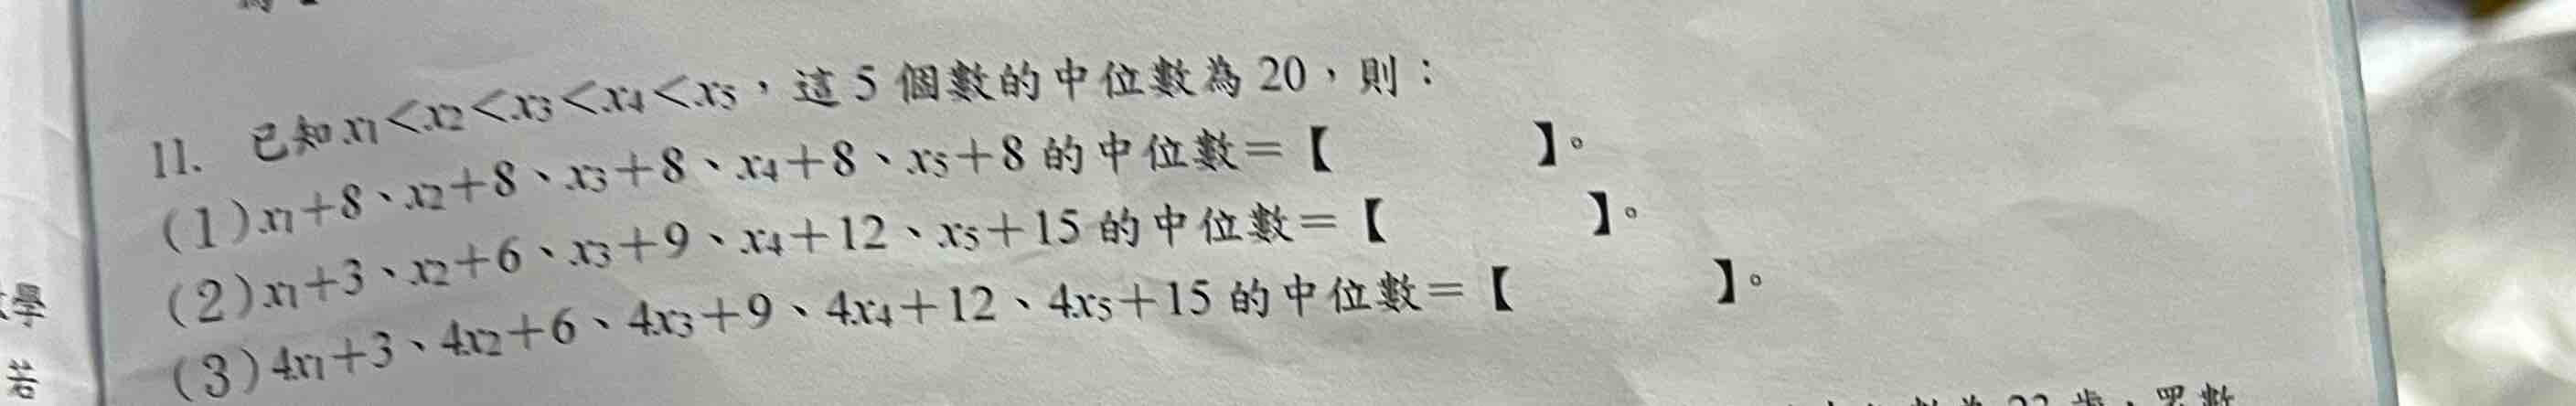 11. 已知x1<x2<x3<x4<x5，這5個數的中位數為20，則：
(1)x1+8、x2+8、x3+8、x4+8、x5+8的中位數=【 】。
(2)x1+3、x2+6、x3+9、x4+12、x5+15的中位數=【 】。
(3)4x1+3、4x2+6、4x3+9、4x4+12、4x5+15的中位數=【 】。
學
若